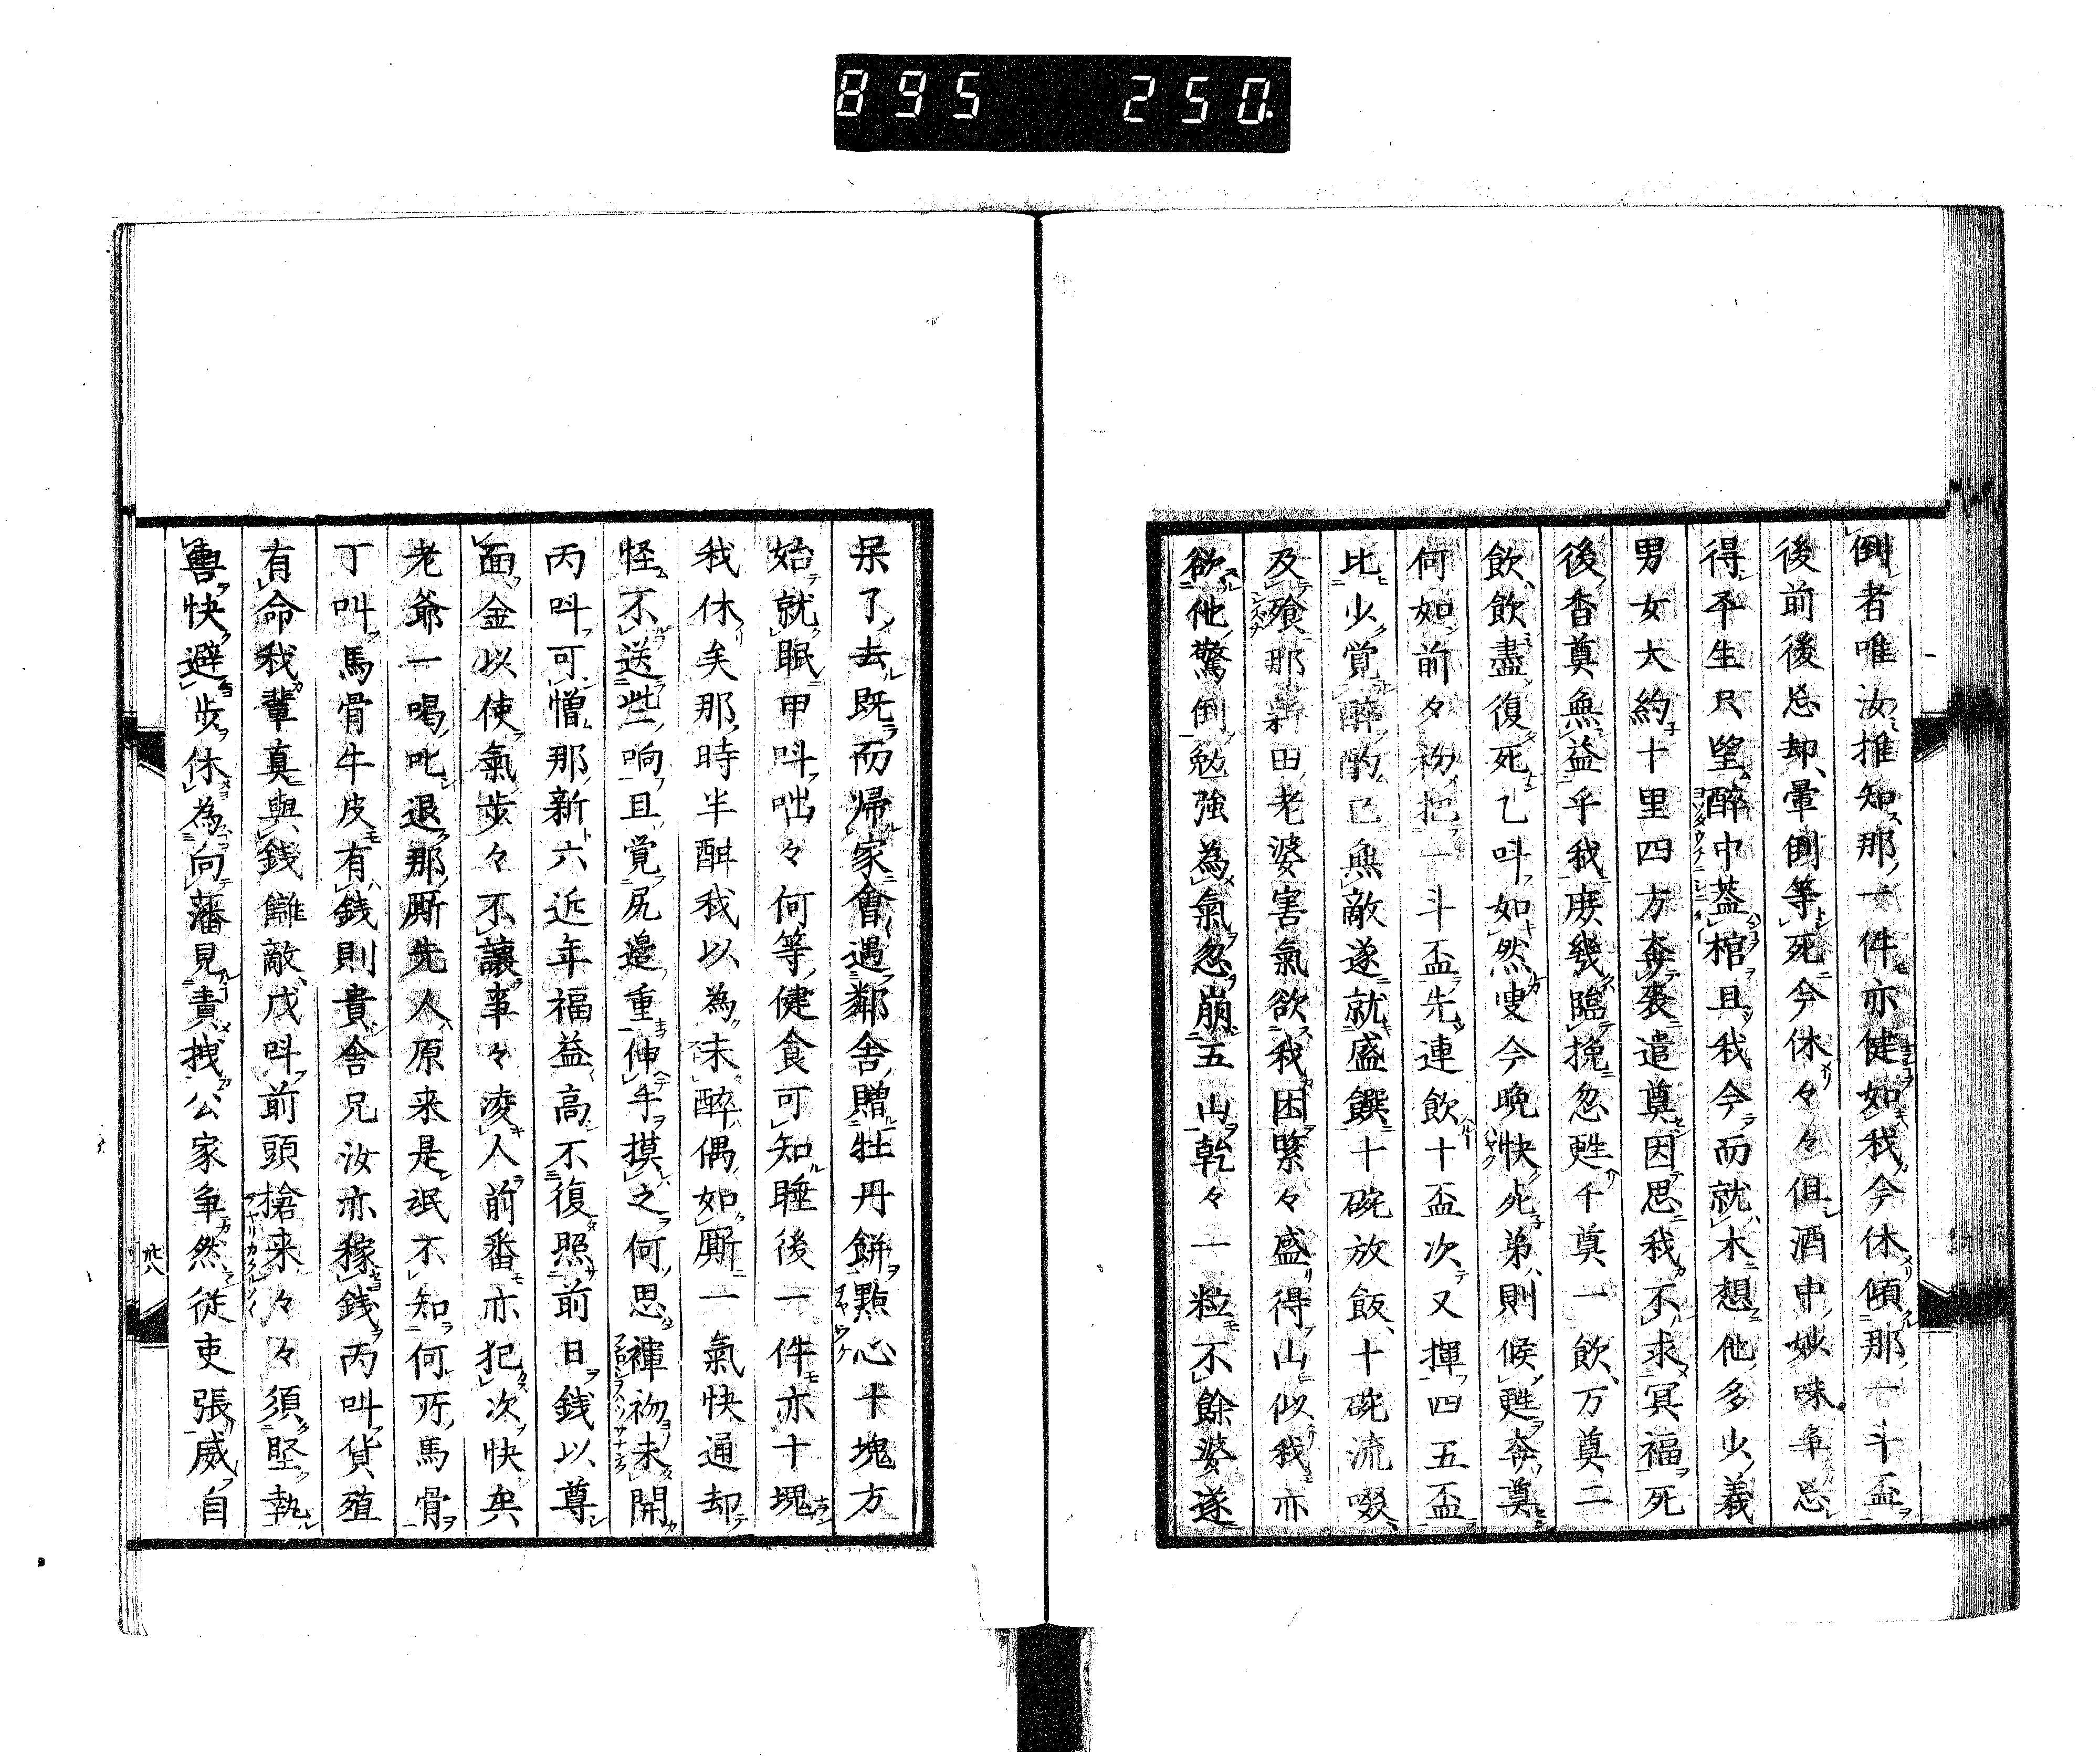 895 250.
倒者唯汝推知那一件亦健如我今休傾那一斗盃
後前後忌却暈倒等死今休々々但酒中妙味争忌
得平生只望醉中蓋棺且我今而就木想他多少義
男女大約十里四方奔喪遣奠因思我不求冥福死
後香奠無益乎我庶幾臨挽忽甦千奠一飲万奠二
飲飲盡復死乙叫如然叟今晩快死弟則候甦奔奠
何如前夕初把一斗盃先連飲十盃次又揮四五盃
比少覚醉酌已無敵遂就盛饌十碗放飯十碗流啜
及飧那新田老婆害氣欲我困緊々盛得山似我亦
欲他驚倒勉強為氣忽崩五山乾々一粒不餘婆遂
呆了去既而帰家會遇鄰舍贈牡丹餅點心十塊方
始就眠甲叫咄々何等健食可知睡後一件亦十塊
我休矣那時半酣我以為未醉偶如厮一氣快通却
怪不送些响且覚尻邉重伸手摸之何思褌初未開
丙叫可憎那新六近年福益高不復照前日銭以尊
面金以使氣歩々不讓事々凌人前番亦犯次快矣
老爺一喝叱退那厮先人原来是氓不知何所馬骨
丁叫馬骨牛皮有銭則貴舎兄汝亦稼銭丙叫貨殖
有命我輩真與銭讎敵戊叫前頭搶来々々須堅執
轡快避歩休為向藩見責拽公家争然従吏張威自
廿八